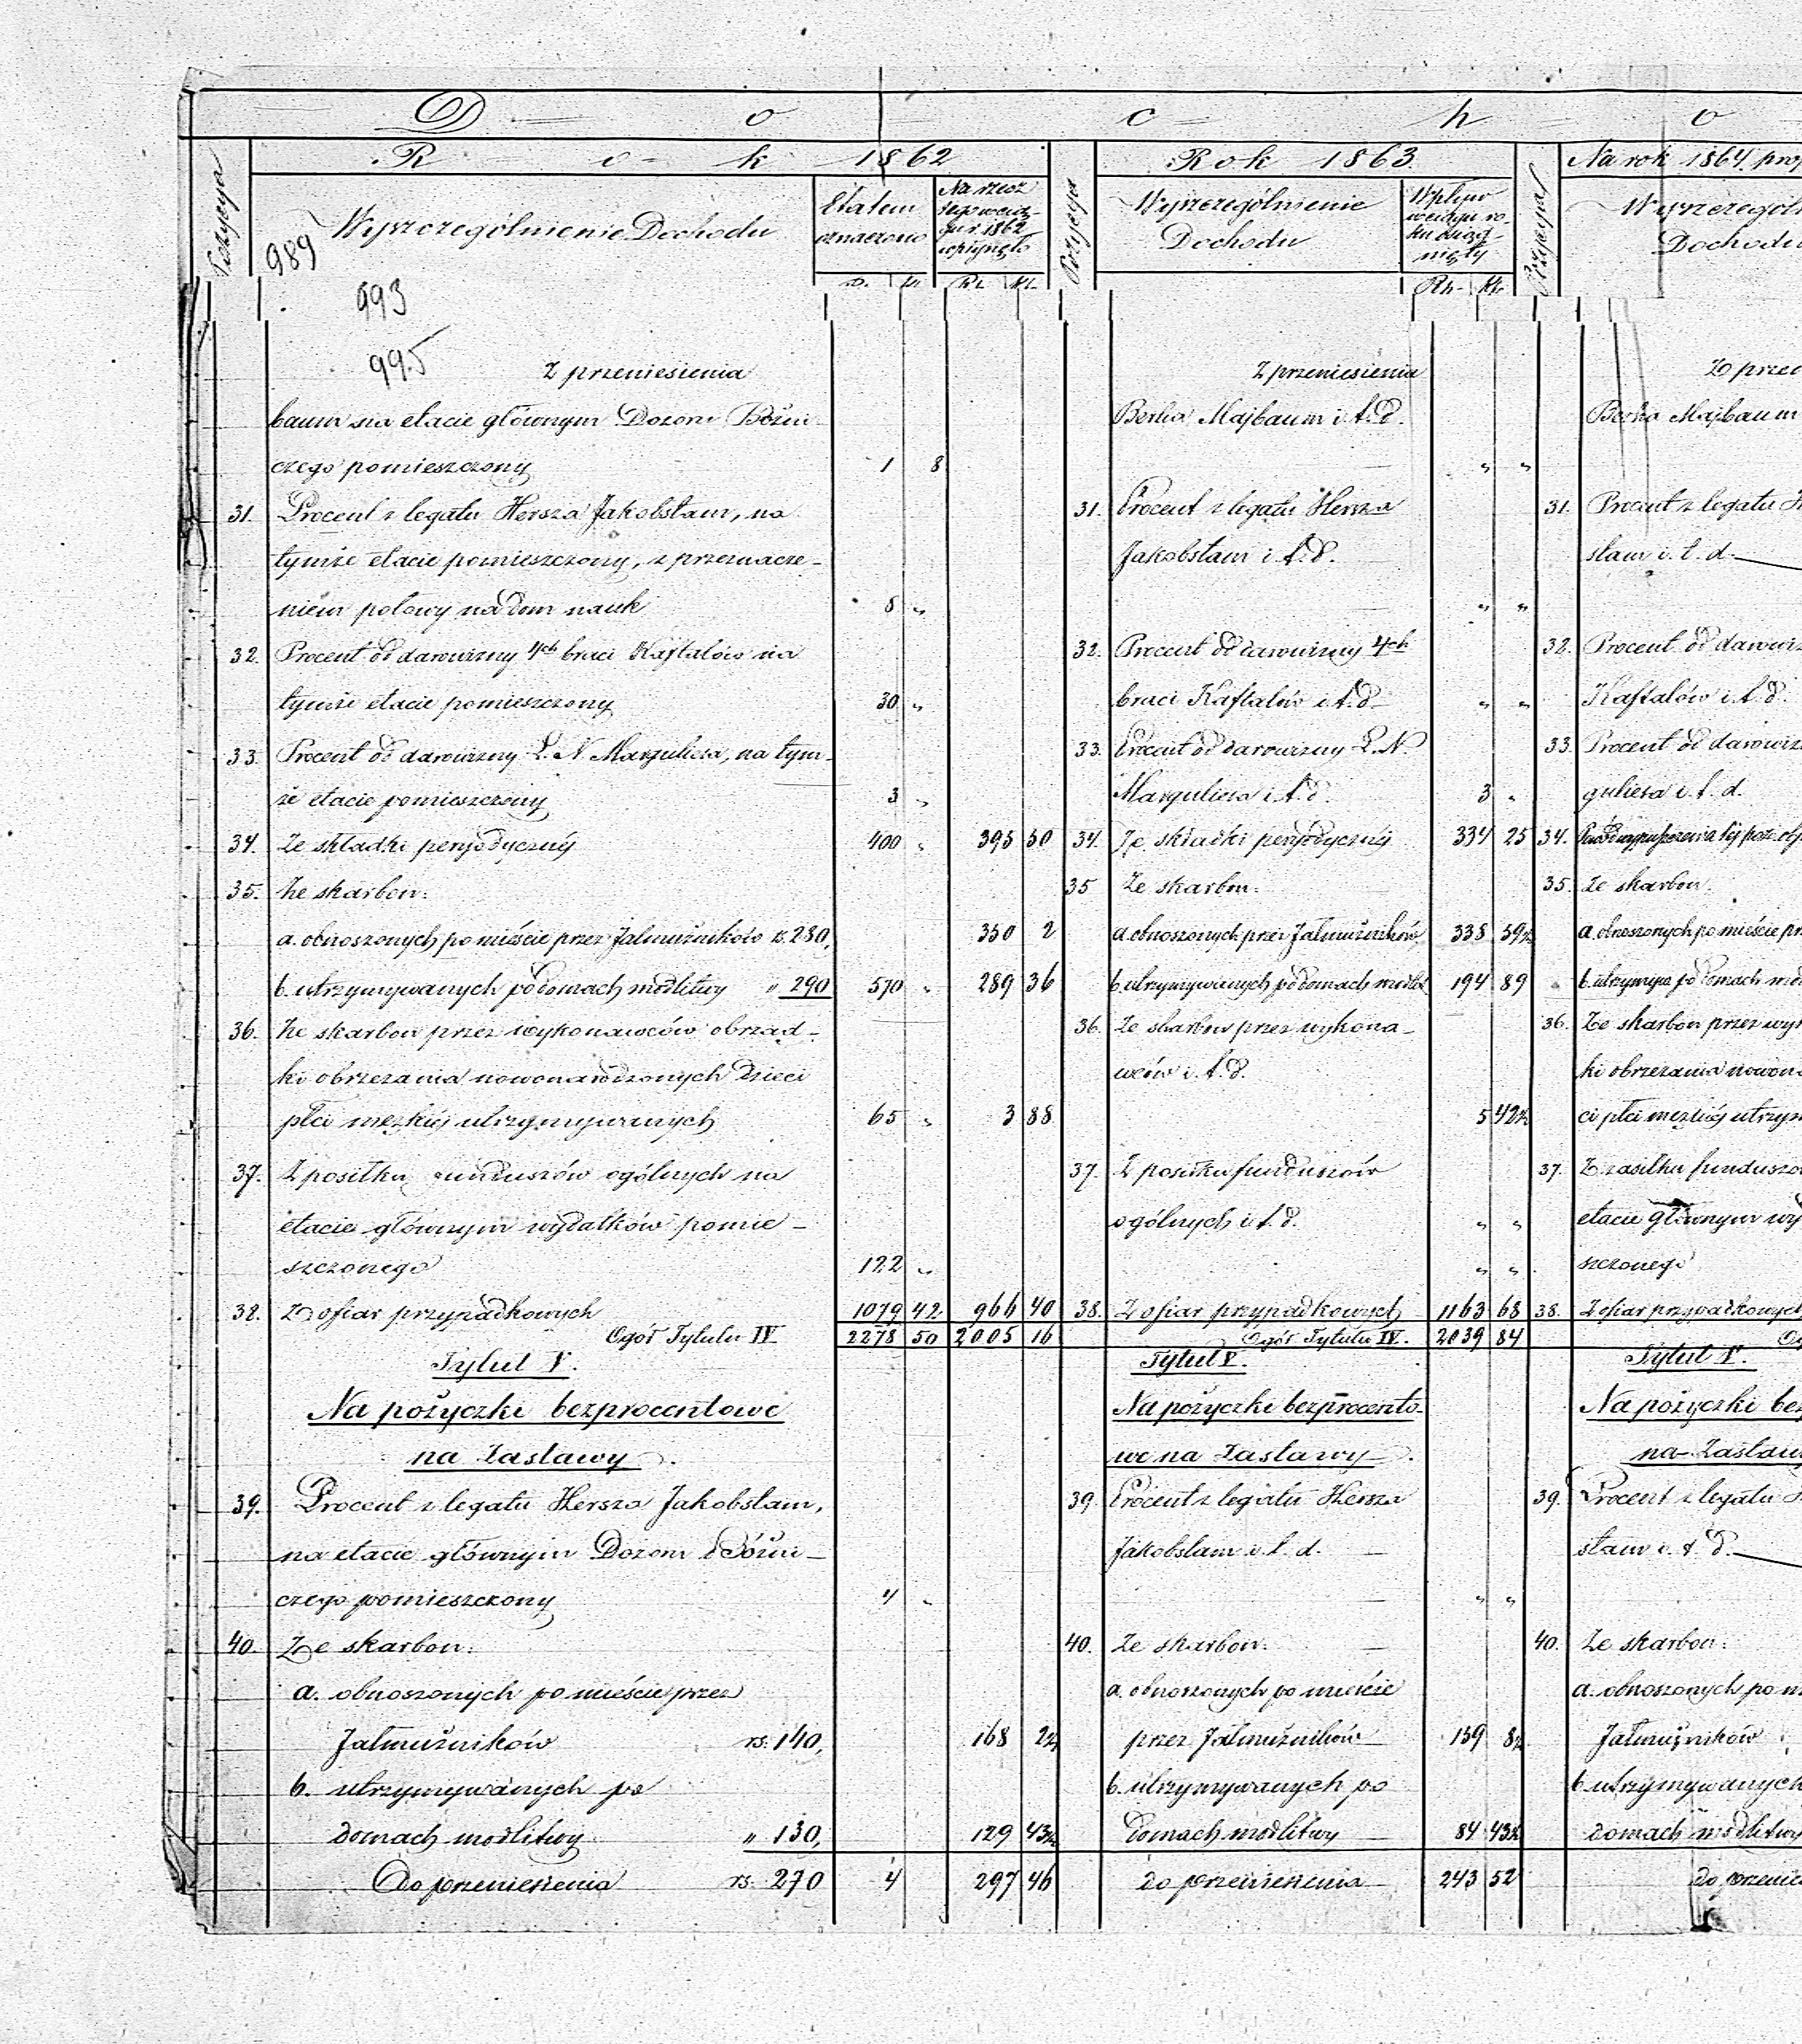 D o c h o
R o k 1862
Rok 1863.
Na rok 1864 prop
Pozycya
Wyszczególnienie Dochodu
Etatem
oznaczono
Na rzecz
tego
w r. 1862
wpłynęło
Pozycya
Wyszczególnienie
Dochodu
Wpływ
Rs. Kr.
Pozycya
Wyszczególn
Dochodu
989
993
995
Z przeniesienia
baum na etacie głównym Dozoru Bóźni-
czego pomieszczony 1 8
31. Procent z legatu Hersza Jakobstam, na
tymże etacie pomieszczony, z przeznacze-
niem połowy na dom nauk 8 „
32. Procent od darowizny 4ch braci Kaftalów na
tymże etacie pomieszczony 30 „
33. Procent od darowizny L. N. Marguliesa, na tym-
że etacie pomieszczony 3 „
34. Ze składki perjodycznéj 400 „ 395 50
35. Ze skarbon:
a. obnoszonych po mieście przez Jałmużników rs. 280, 350 2
b. utrzymywanych po domach modlitwy „ 290 570 „ 289 36
36. Ze skarbon przez wykonawców obrząd-
ki obrzezania nowonarodzonych dzieci
płci męzkiéj utrzymywanych 65 „ 3 88
37. Z posiłku funduszów ogólnych na
etacie głównym wydatków pomie-
szczonego 122 „
38. Z ofiar przypadkowych 1079 42 966 40
Ogół Tytułu IV 2278 50 2005 16
Tytuł V.
Na pożyczki bezprocentowe
na Zastawy.
39. Procent z legatu Hersza Jakobstam,
na etacie głównym Dozoru Bóźni-
czego pomieszczony 4 „
40. Ze skarbon:
a. obnoszonych po mieście przez
Jałmużników rs. 140, 168 2½
b. utrzymywanych po
domach modlitwy „ 130, 129 43½
Do przeniesienia rs. 270 4 297 46
Z przeniesienia
Berka Majbaum i t. d.
„ „
31. Procent z legatu Hersza
Jakobstam i t. d.
„ „
32. Procent od darowizny 4ch
braci Kaftalów i t. d. „ „
33. Procent od darowizny L. N.
Marguliesa i t. d. 3 „
34. Ze składki perjodycznéj 334 25
35 Ze skarbon:
a. obnoszonych przez Jałmużników 338 59½
b. utrzymywanych po domach modlit 194 89
36. Ze skarbon przez wykona-
wców i t. d.
5 42½
37. Z posiłku funduszów
ogólnych i t. d. „ „
„ „
38. Z ofiar przypadkowych 1163 68
Ogół Tytułu IV. 2039 84
Tytuł V.
Na pożyczki bezprocento-
we na Zastawy.
39. Procent z legatu Hersza
Jakobstam i t. d.
„ „
40. Ze skarbon:
a. obnoszonych po mieście
przez Jałmużników 159 8½
b. utrzymywanych po
domach modlitwy 84 43½
do przeniesienia 243 52
Z przen
Berka Majbaum
31. Procent z legatu H
stam i. t. d.
32. Procent od darowiz
Kaftalów i. t. d.
33. Procent od darowiz
guliesa i. t. d.
34.
35. Ze skarbon:
a. obnoszonych po mieście pr
b. utrzymyw po domach mod
36. Ze skarbon przez wyk
ki obrzezania nowona
ci płci męzkiéj utrzym
37. Z zasiłku funduszó
etacie głównym wyd
szczonego
38. Z ofiar przypadkowych
Og
Tytuł V.
Na pożyczki bez
na Zastaw
39. Procent z legatu H
stam i. t. d.
40. Ze skarbon:
a. obnoszonych po m
Jałmużników
b. utrzymywanych
domach modlitwy
do przenie